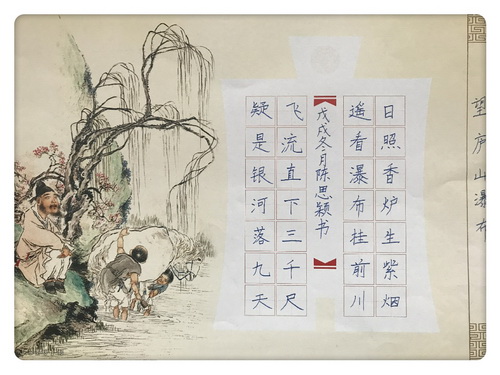 望庐山瀑布
日照香炉生紫烟
遥看瀑布桂前川
戊戌冬月陈思颖书
飞流直下三千尺
疑是银河落九天